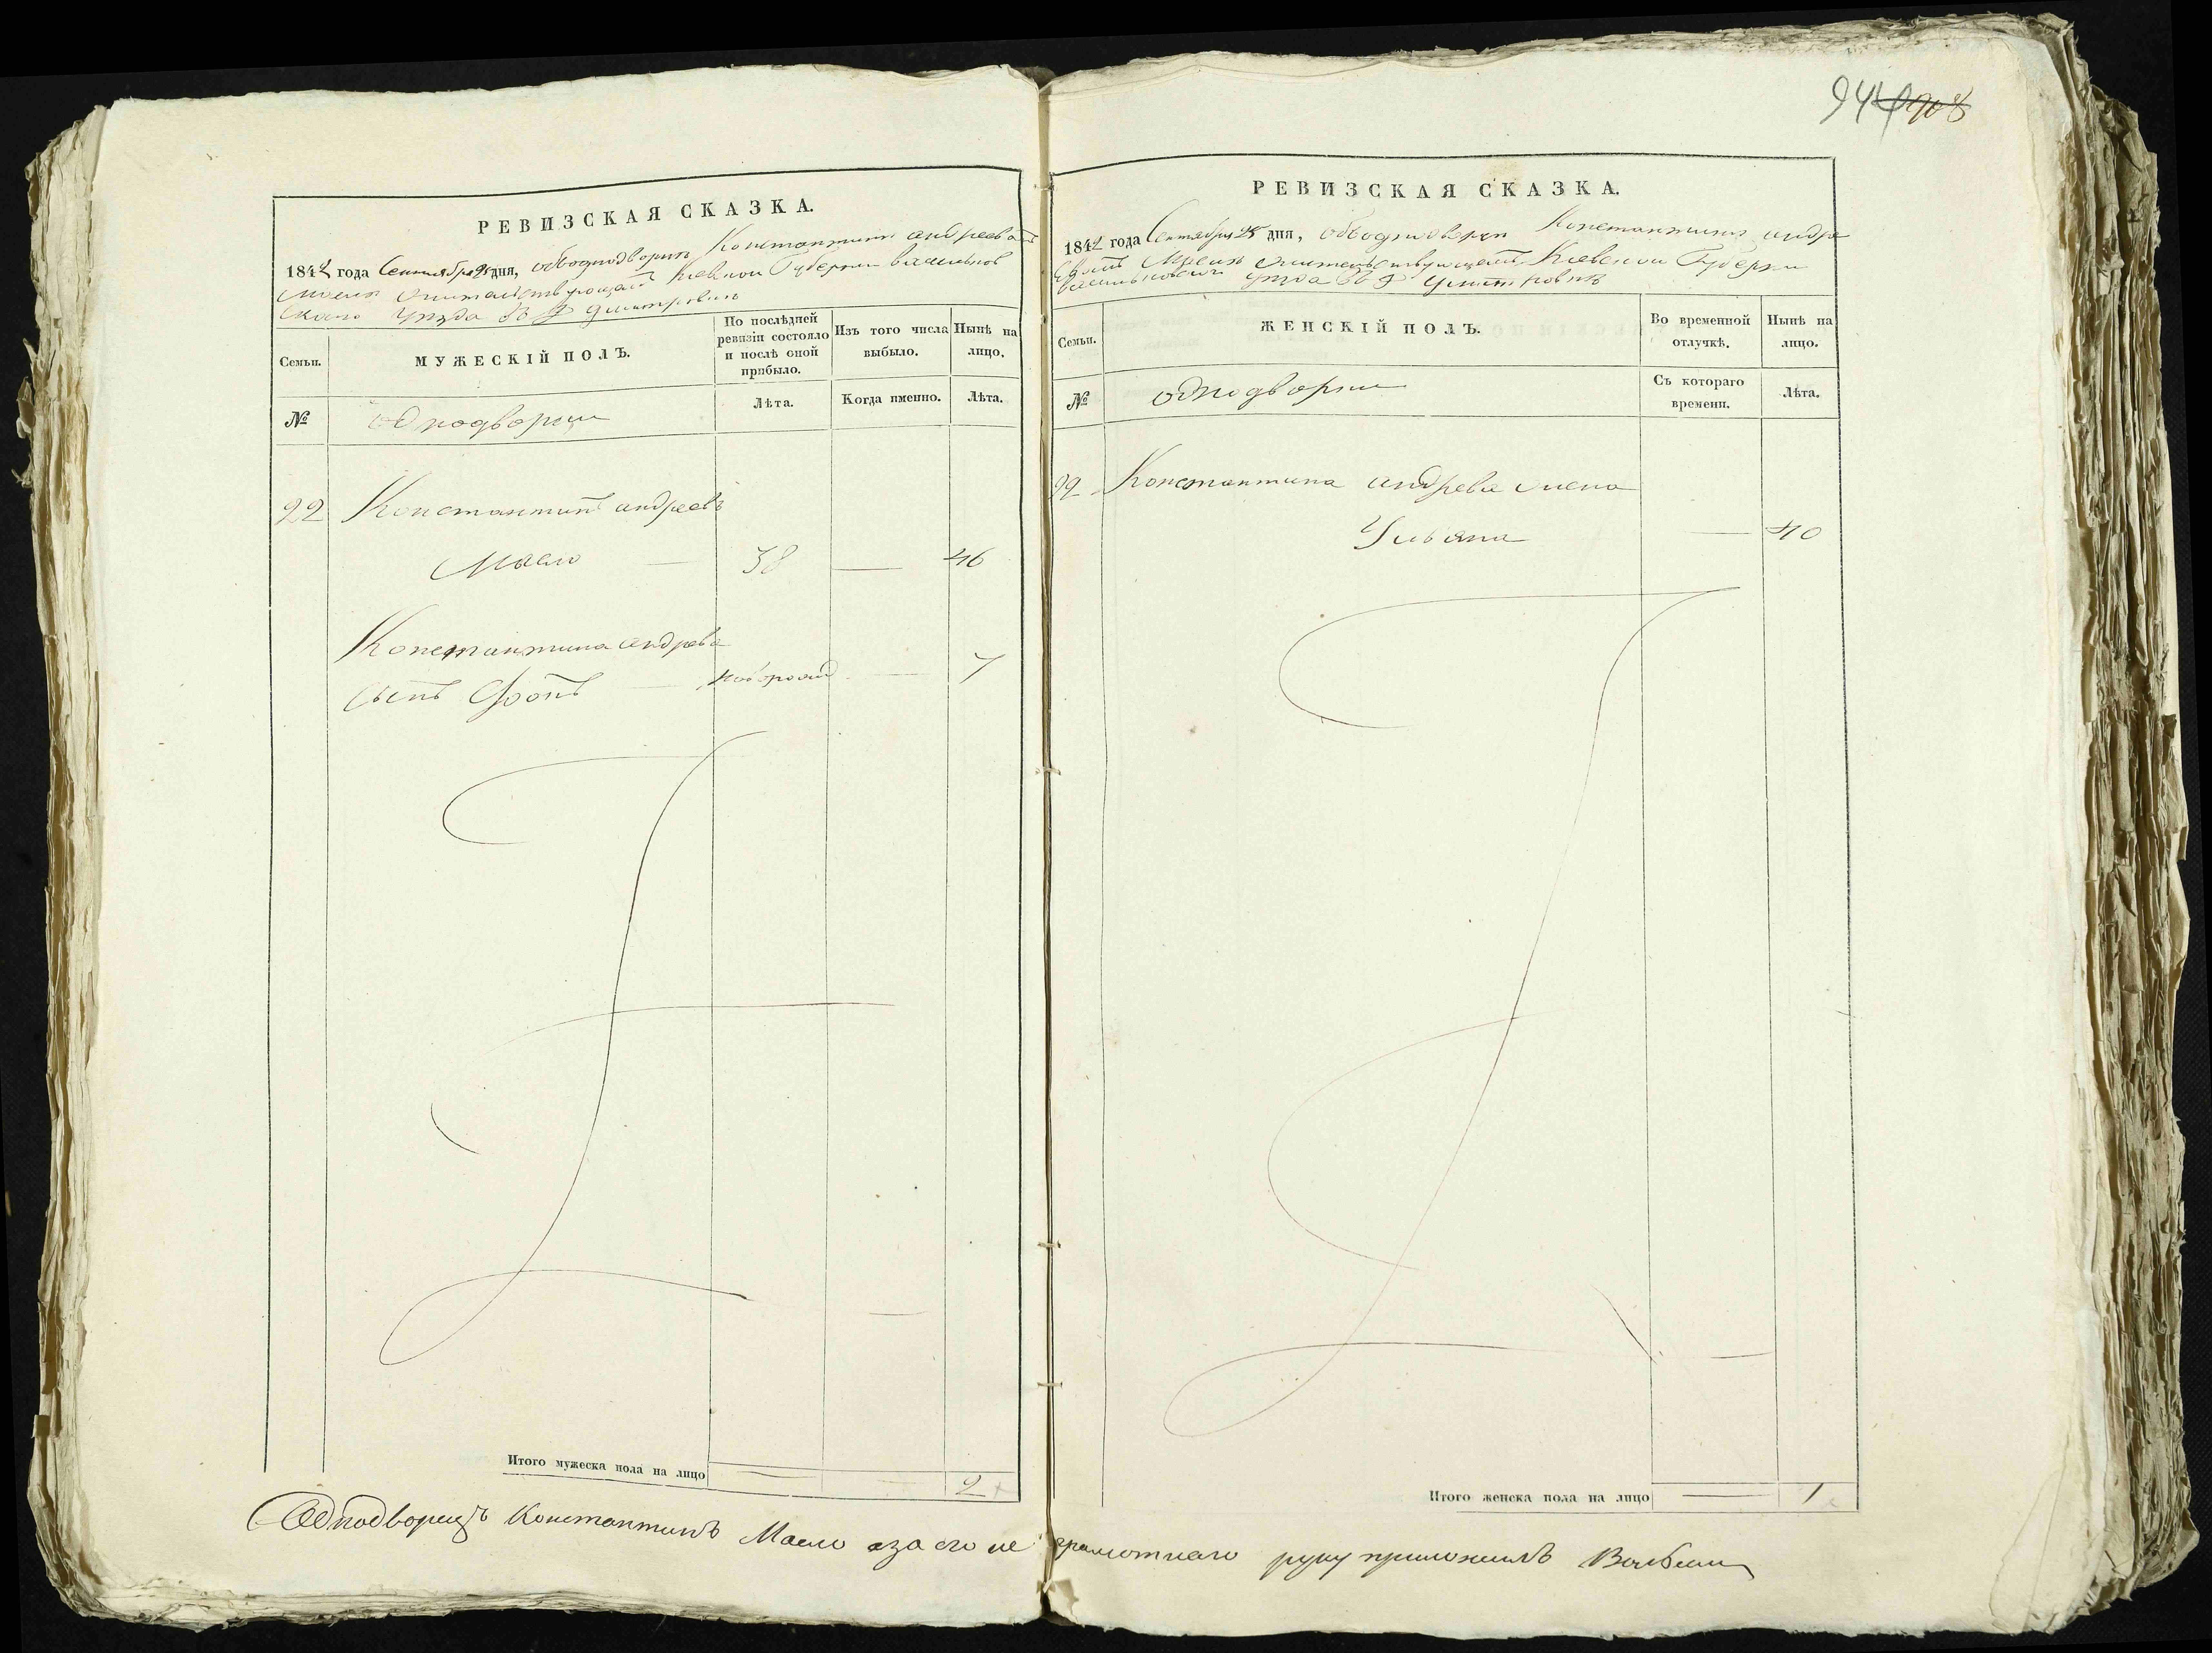 944 908
РЕВИЗСКАЯ СКАЗКА.
1842 года Сентября 25 дня, объ однодворцѣ Константинѣ андреевѣ
жительствующемъ Киевской Губернии васильков
скаго уѣзда въ Д Дмитровкѣ
Семьи.
МУЖЕСКІЙ ПОЛЪ.
По послѣдней ревизіи состояло и послѣ оной прибыло.
Изъ того числа выбыло.
Нынѣ на лицо.
№
однодворцы
Лѣта.
Когда именно.
Лѣта.
22 Константинъ андреевъ
Масло — 38 — 46
Константина андрева
сынъ — — 7
Итого мужеска пола на лицо 2
РЕВИЗСКАЯ СКАЗКА.
1842 года Сентября 25 дня, объ однодворцѣ Константинѣ андре
жительствующемъ Киевской Губерни
васильковскаго уѣзда въ Д Дмитровкѣ
Семьи.
ЖЕНСКІЙ ПОЛЪ.
Во временной отлучкѣ.
Нынѣ на лицо.
№
однодворцы
Съ котораго времени.
Лѣта.
22 Константина андрева жена
Ульяна — 40
Итого женска пола на лицо — 1
Однодворецъ Константинъ Масло а за его не грамотнаго руку приложилъ